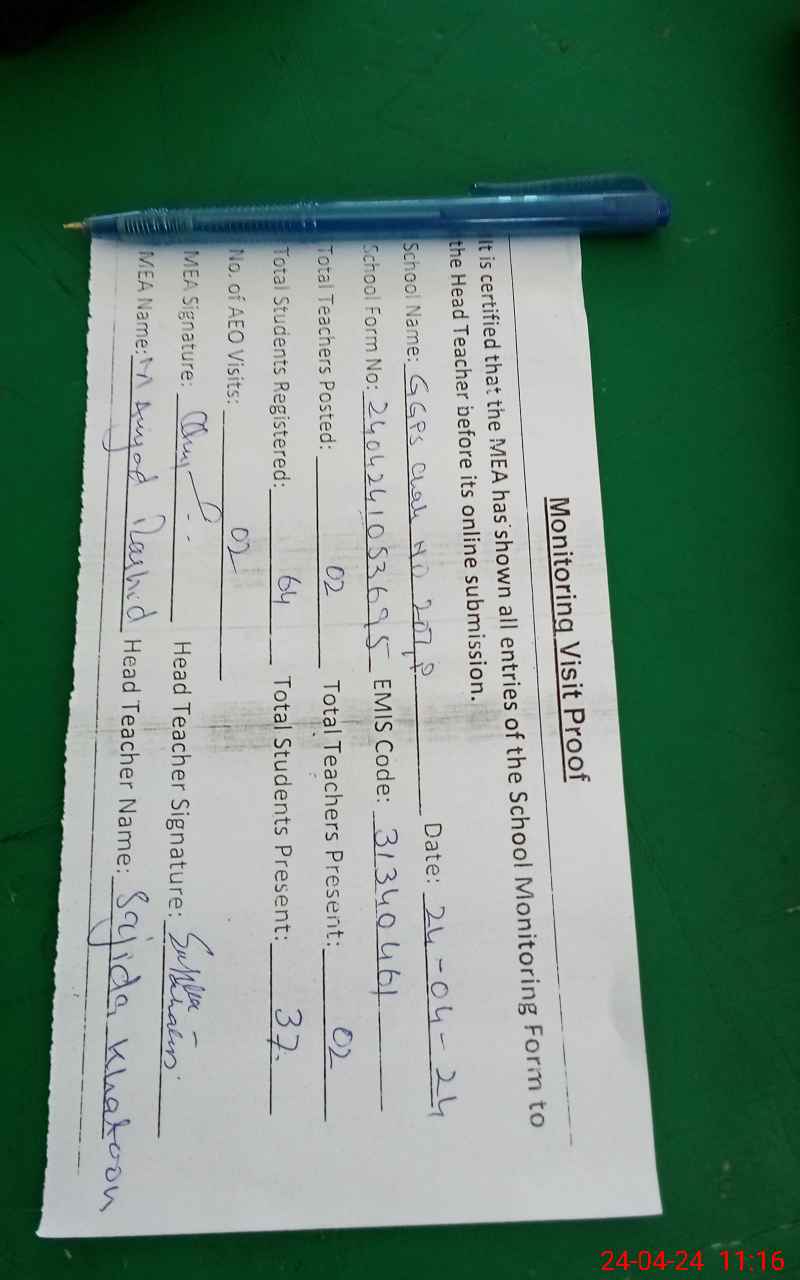 Monitoring Visit Proof
It is certified that the MEA has shown all entries of the School Monitoring Form to
the Head Teacher before its online submission.
School Name: GGPS Chak No Date: 24-04-24
School Form No: 2404241053695 EMIS Code: 31340461
Total Teachers Posted: 02 Total Teachers Present: 02
Total Students Registered: 64 Total Students Present: 37
No. of AEO Visits: 02
MEA Signature: Head Teacher Signature:
MEA Name: Rashid Head Teacher Name: Sajida Khatoon
24-04-24 11:16